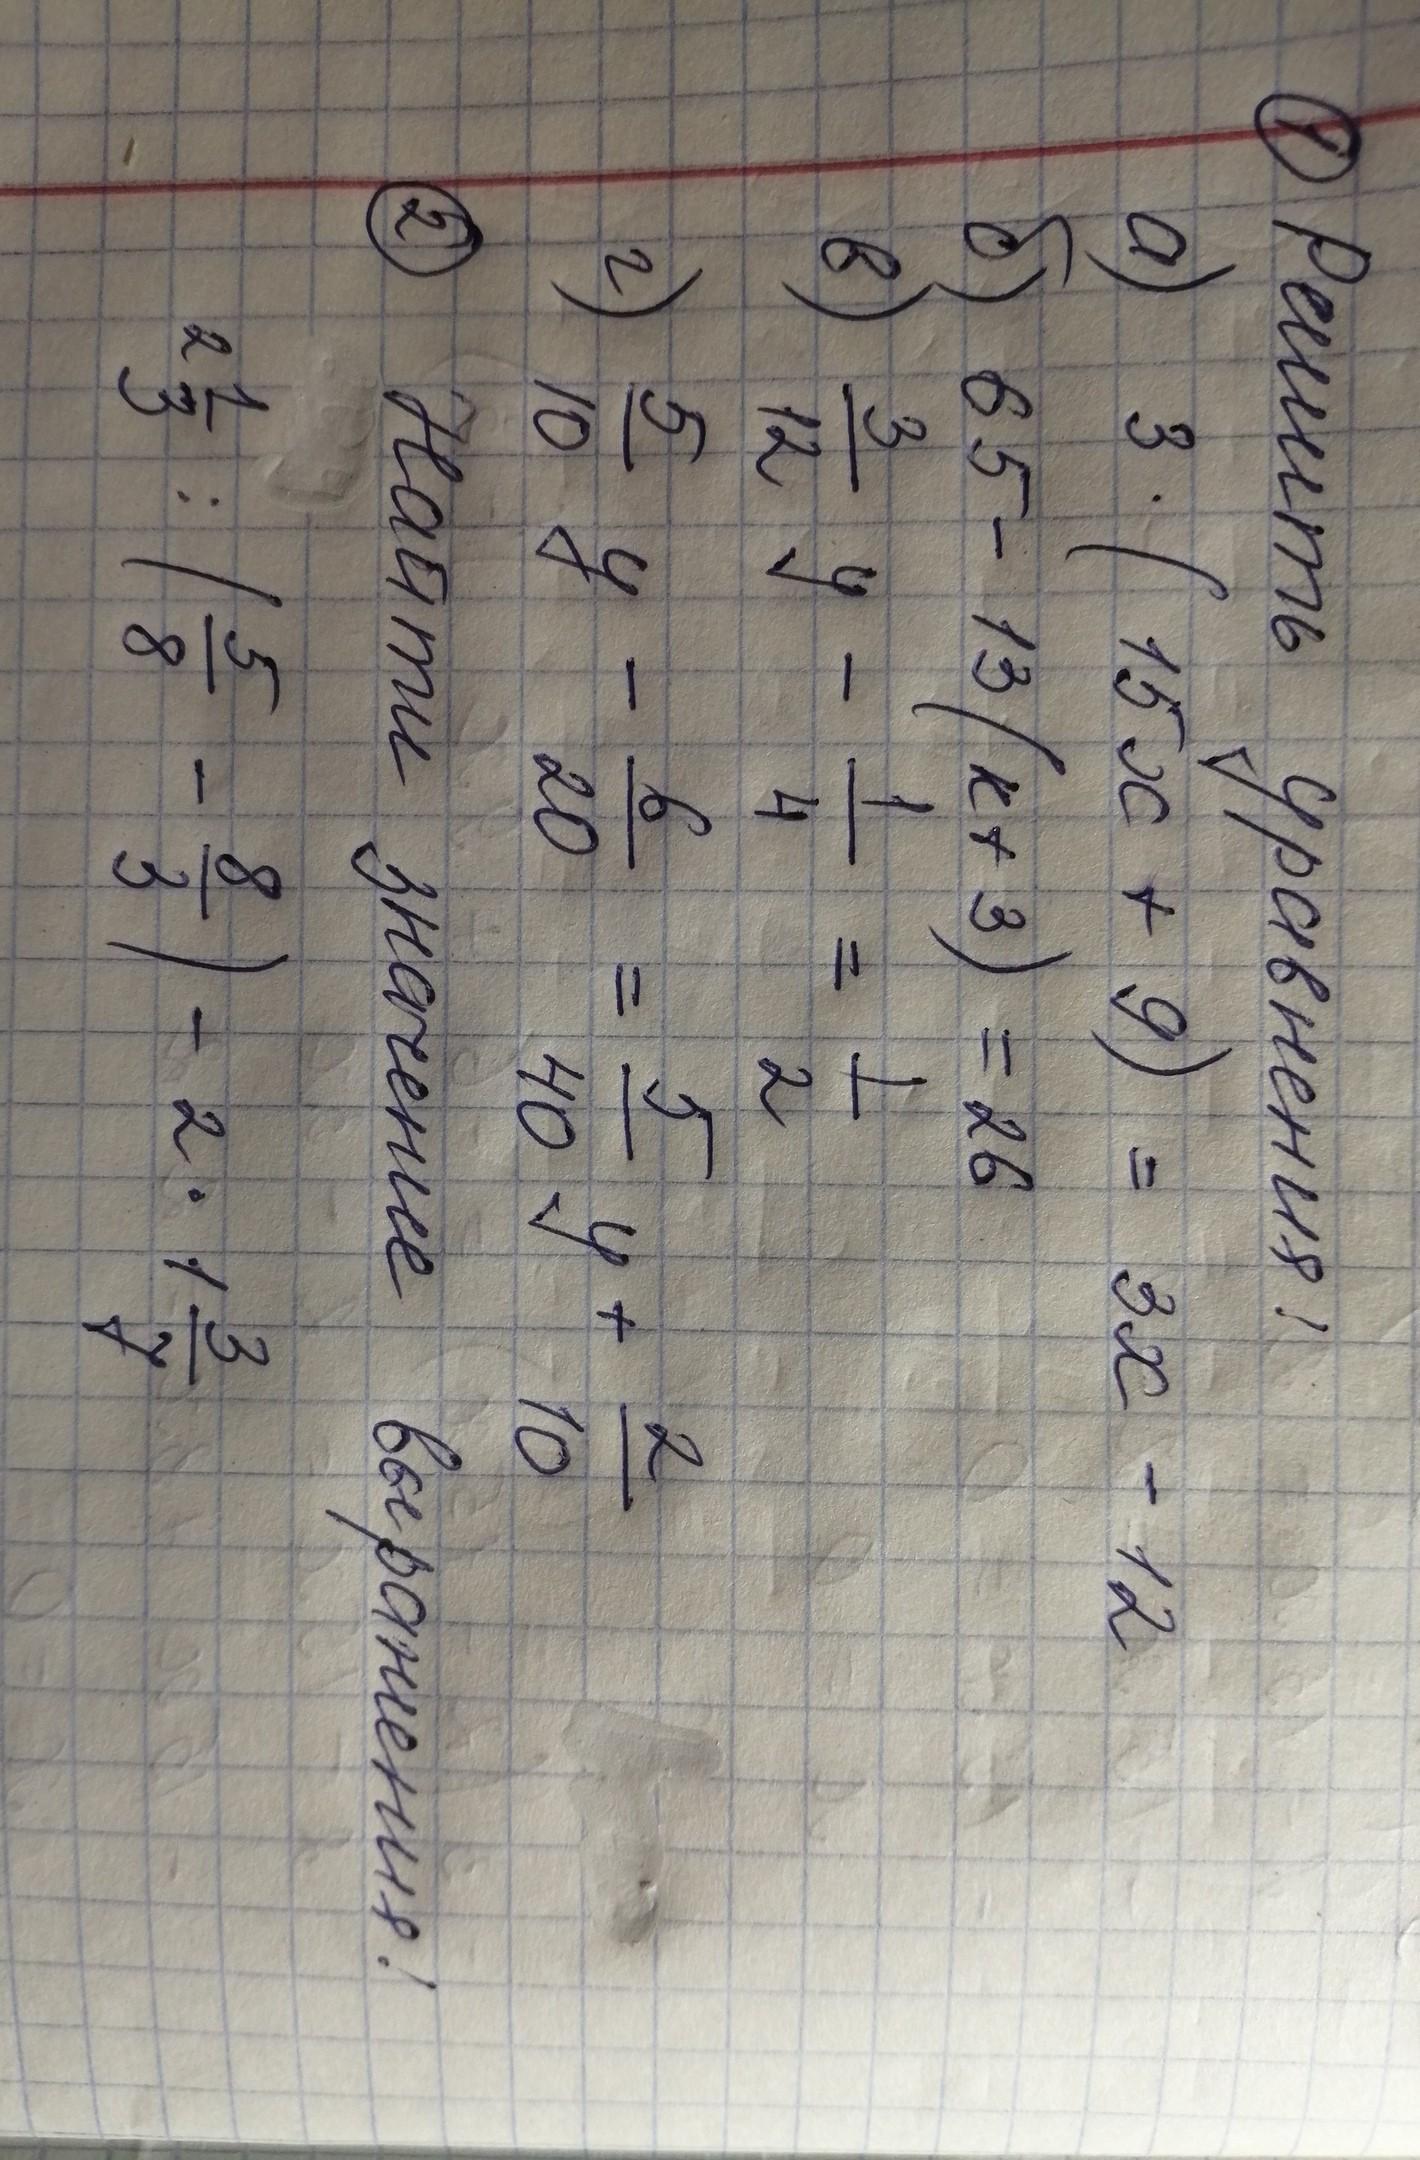 ① Решить уравнения!
а) 3 · (15x + 9) = 3x - 12
б) 65 - 13(к + 3) = 26
в) 3/12 y - 1/4 = 1/2
г) 5/10 y - 6/20 = 5/40 y + 2/10
② Найти значение выражения!
2 1/3 : (5/8 - 8/3) - 2 · 1 3/7